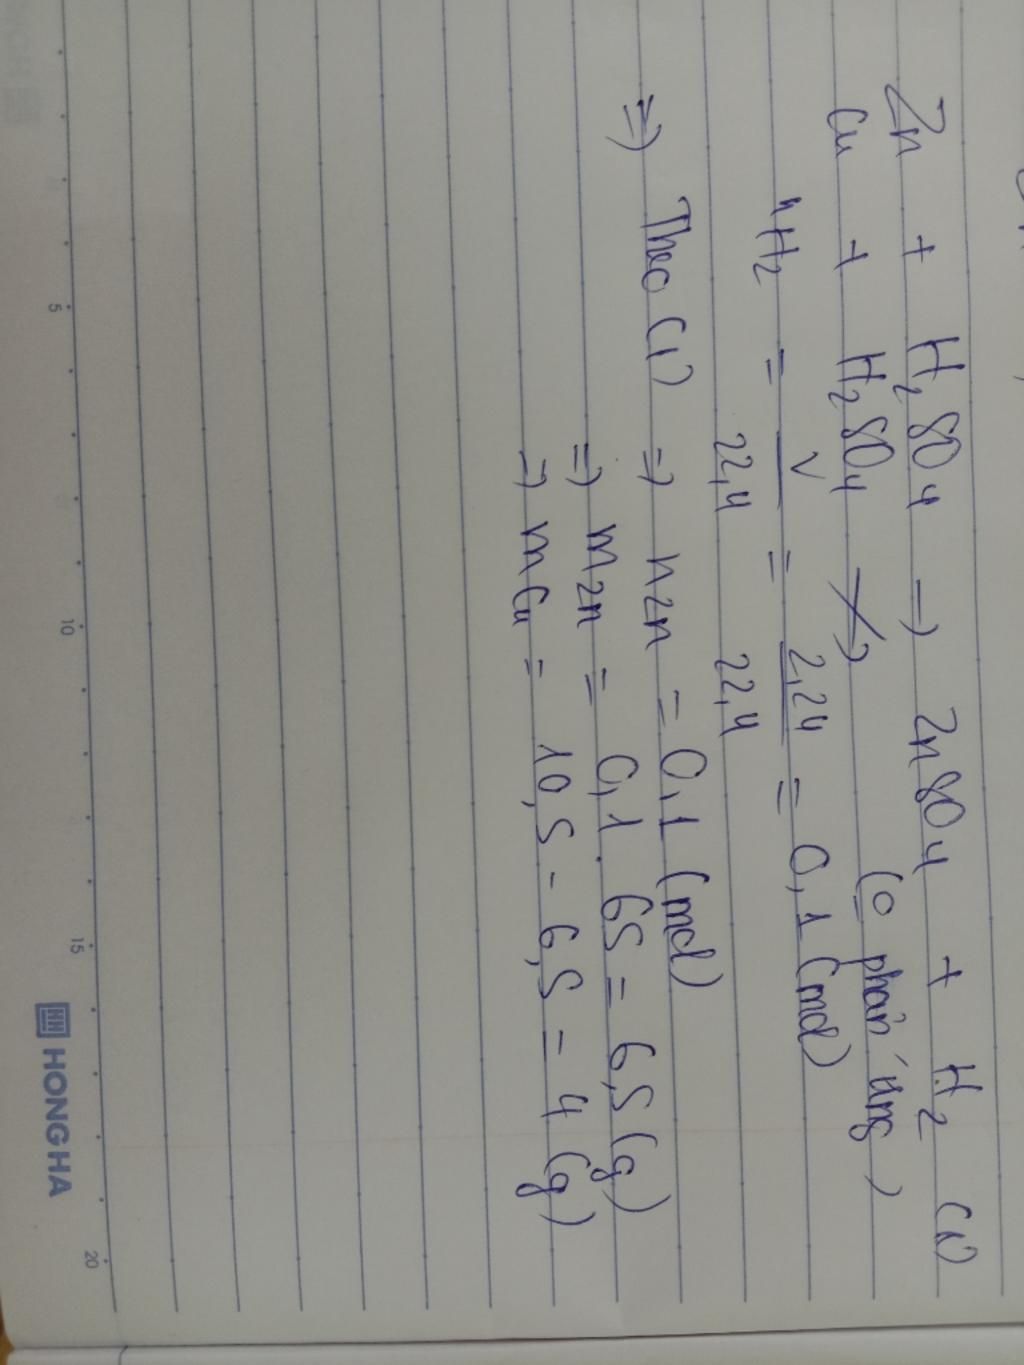 Zn + H₂SO₄ → ZnSO₄ + H₂ (1)
Cu + H₂SO₄ ↛ (0 phản ứng)
nH₂ = V/22,4 = 2,24/22,4 = 0,1 (mol)
⇒ Theo (1) ⇒ nZn = 0,1 (mol)
⇒ mZn = 0,1 . 65 = 6,5 (g)
⇒ mCu = 10,5 - 6,5 = 4 (g)
5 10 15 20
HONG HA